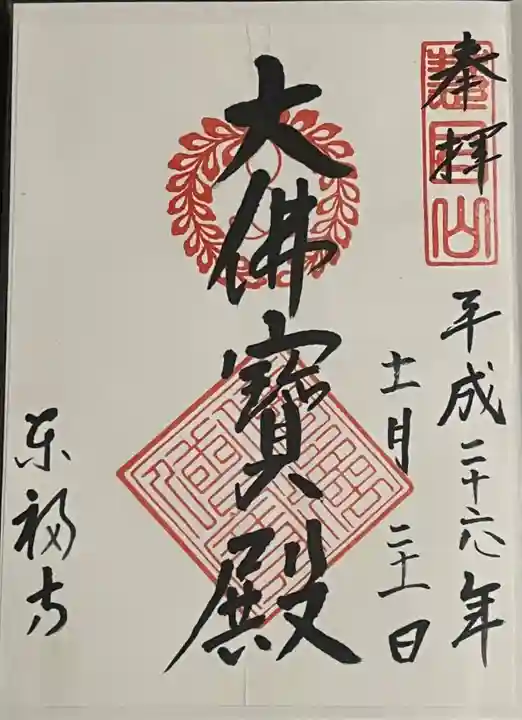 奉拝
慧日山
平成二十六年
十一月二十一日
大佛寶殿
東福寺